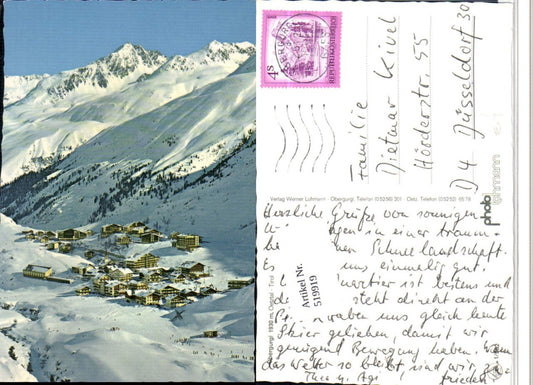 4S
REPUBLIK ÖSTERREICH
OBERGURGL
Familie
Dietmar Kivel
Hörderstr. 55
D 4 Düsseldorf 30
Verlag Werner Lohmann · Obergurgl, Telefon (05256) 301
photo
lohmann
Obergurgl 1930 m, Ötztal · Tirol
Artikel Nr.
519919
Herzliche Grüße von sonnigen
in einer traum
Schneelandschaft.
Es uns einmalig gut.
ist bestens und
steht direkt an der
haben uns gleich heute
Skier geliehen, damit wir
genügend Bewegung haben. Wenn
das Wetter so bleibt, sind wir
zufrieden